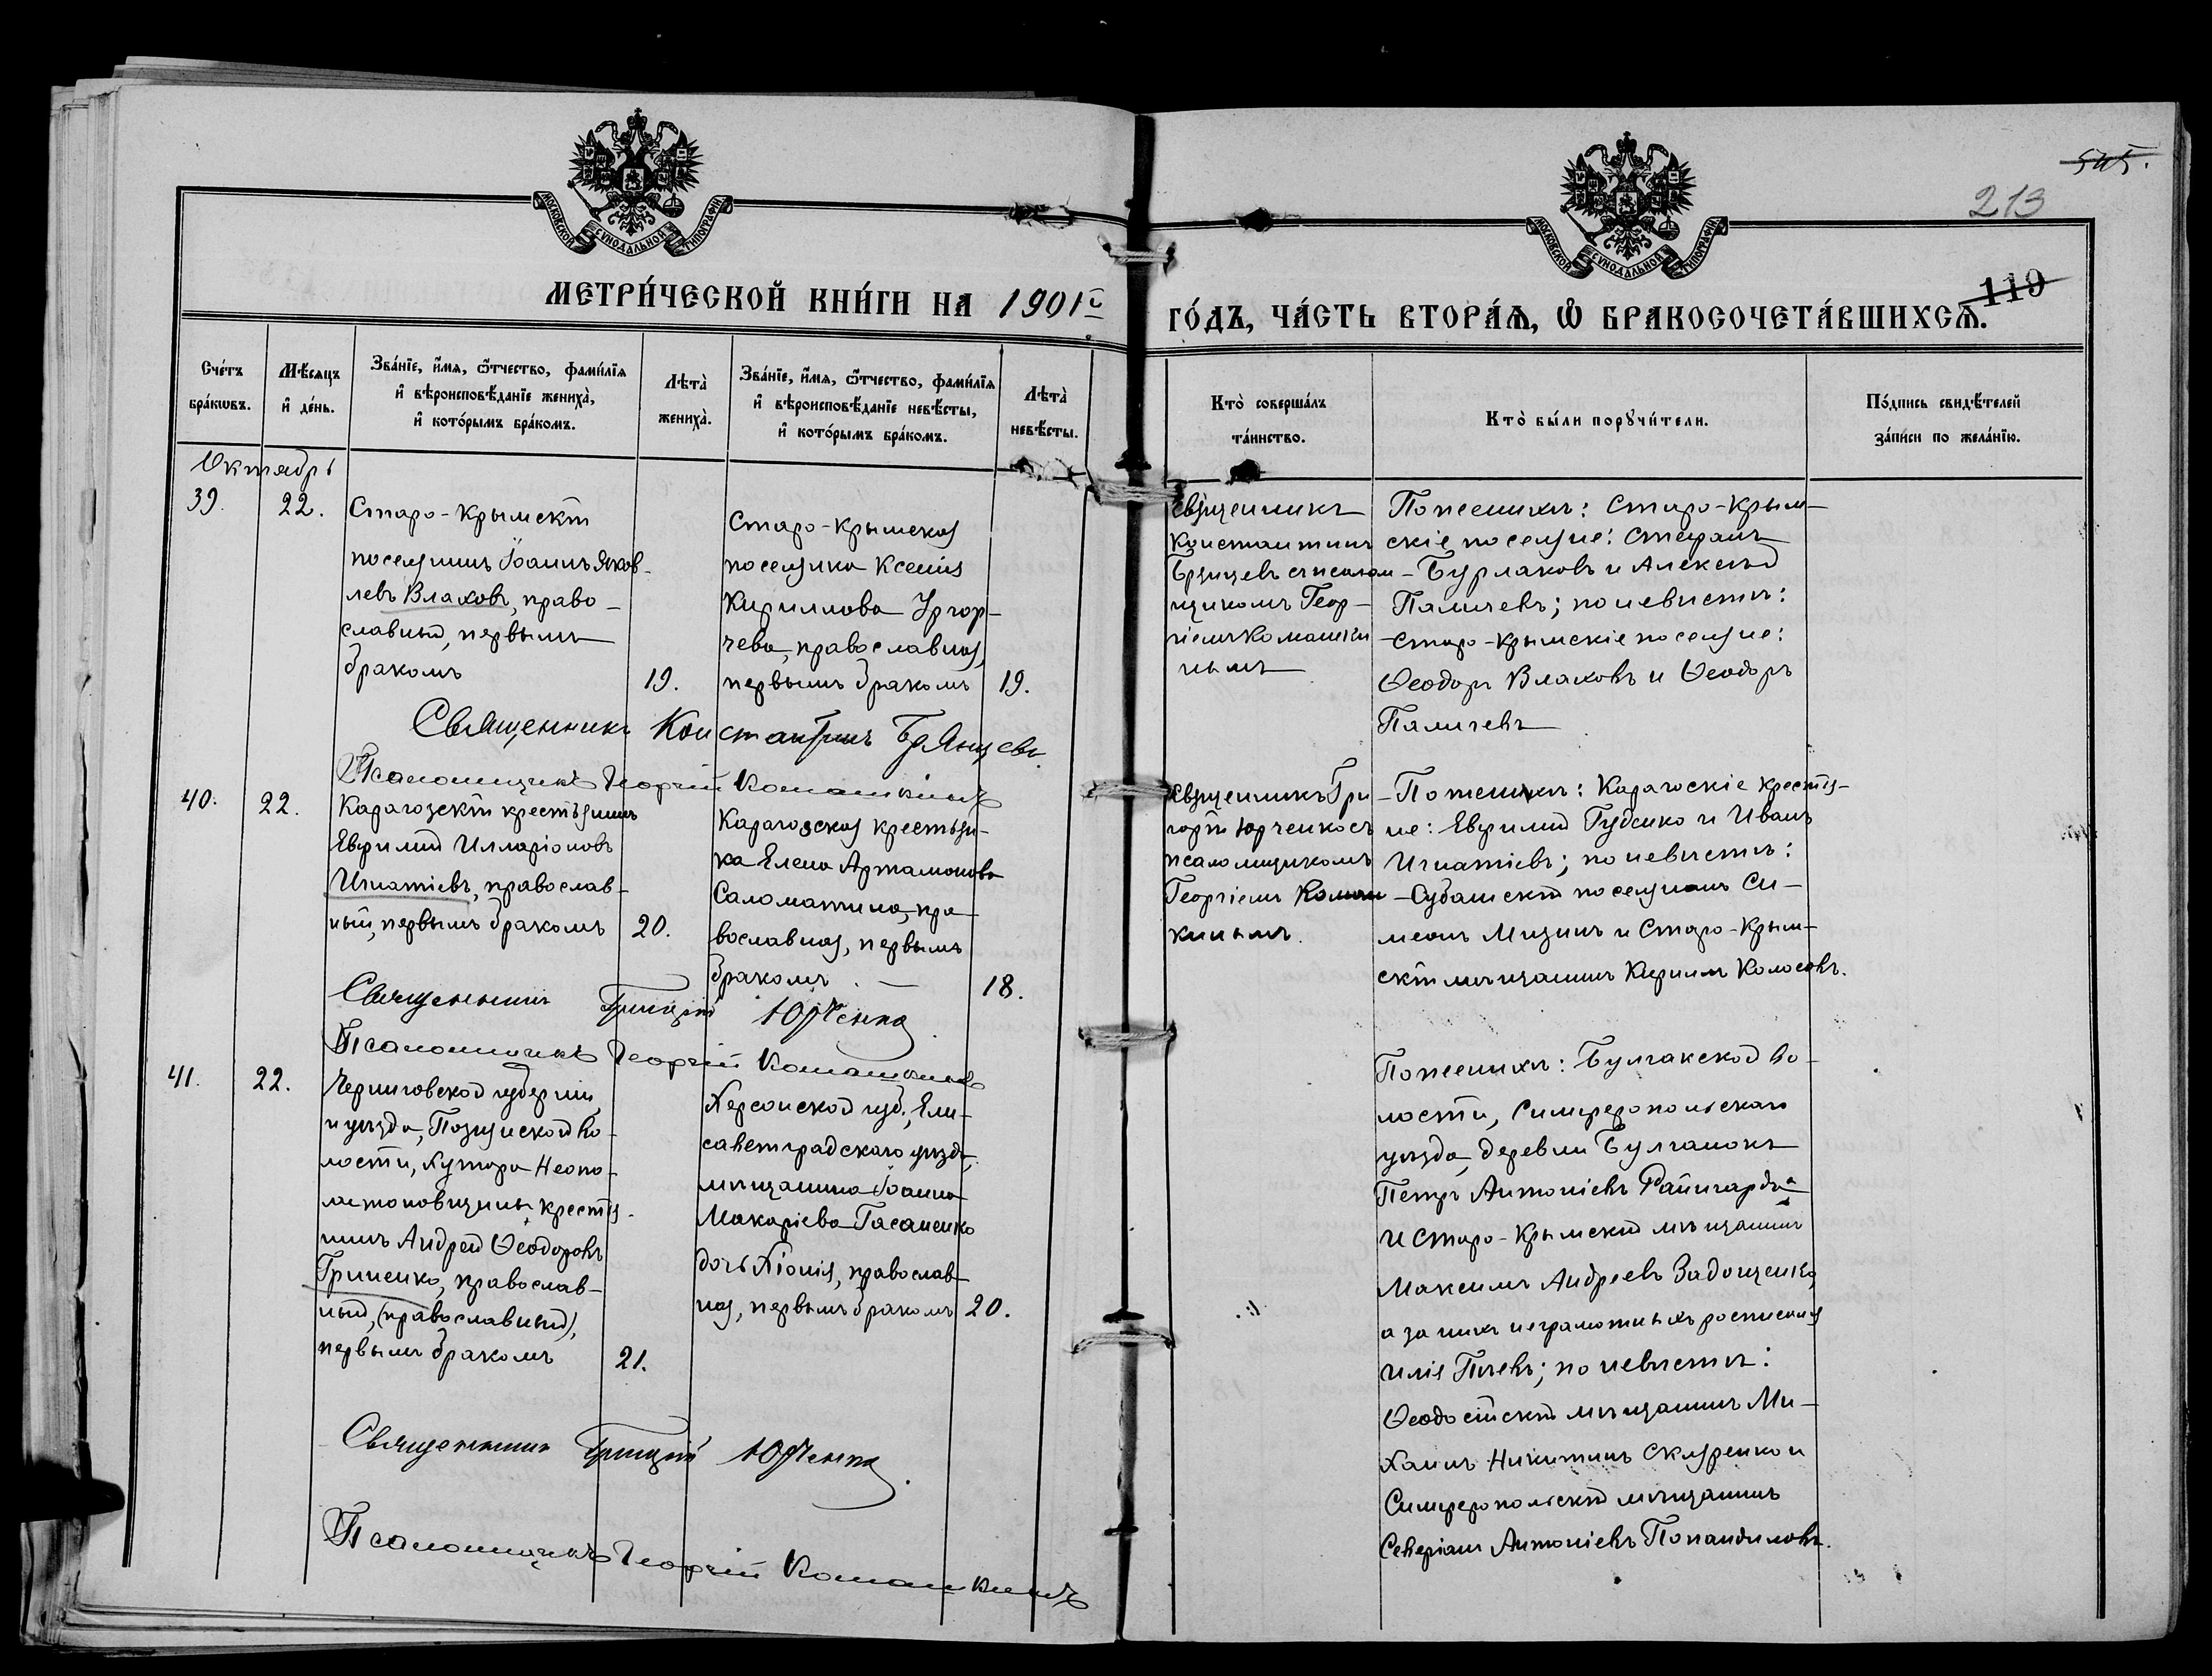 545.
213
119
МОСКОВСКОЙ СѴНОДАЛЬНОЙ ТИПОГРАФІИ
МОСКОВСКОЙ СѴНОДАЛЬНОЙ ТИПОГРАФІИ
МЕТРИ́ЧЕСКОЙ КНИ́ГИ НА 1901й
ГО́ДЪ, ЧА́СТЬ ВТОРА́Я, Ѡ БРАКОСОЧЕТА́ВШИХСЯ.
Сче́тъ
бра́кѡвъ.
Мѣ́сяцъ
и҆ де́нь.
Зва́нїе, и҆́мя, ѻ҆́тчество, фами́лїя
и҆ вѣроисповѣ́данїе жениха̀,
и҆ кото́рымъ бра́комъ.
Лѣта̀
жениха̀.
Зва́нїе, и҆́мя, ѻ҆́тчество, фами́лїя
и҆ вѣроисповѣ́данїе невѣ́сты,
и҆ кото́рымъ бра́комъ.
Лѣта̀
невѣ́сты.
Кто̀ соверша́лъ
та́инство.
Кто̀ бы́ли порꙋчи́тели.
По́дпись свидѣ́телей
за́писи по жела́нїю.
Октябрь
39.
22.
Старо-Крымскій
поселянинъ Іоаннъ Яков-
левъ Влаховъ, право-
славный, первымъ
бракомъ
19.
Старо-Крымская
поселянка Ксенія
Кириллова
чева, православная,
первымъ бракомъ
19.
Священникъ
Константинъ
Брянцевъ съ псалом-
щикомъ Геор-
гіемъ Комашки
нымъ
По женихѣ: Старо-Крым-
скіе поселяне: Стефанъ
Бурлаковъ и Алексѣй
Паличевъ; по невѣстѣ:
Старо-Крымскіе поселяне:
Ѳеодоръ Влаховъ и Ѳеодоръ
Паличевъ
Священникъ Константинъ Брянцевъ.
Псаломщикъ Георгій Комашкинъ
40.
22.
Карагозскій крестьянинъ
Евфимій Илларіоновъ
Игнатіевъ, православ-
ный, первымъ бракомъ
20.
Карагозская крестьян-
ка Елена Артамонова
Саломатина, пра-
вославная, первымъ
бракомъ. —
18.
Священникъ Гри
горій Юрченко съ
псаломщикомъ
Георгіемъ Комаш
кинымъ.
По женихѣ: Карагоскіе крестья-
не: Евфимій Губенко и Иванъ
Игнатіевъ; по невѣстѣ:
Субашскій поселянинъ Си-
меонъ Мизинъ и Старо-Крым-
скій мѣщанинъ Кириллъ Колосовъ.
Священникъ Григорій Юрченко
Псаломщикъ Георгій Комашкинъ
41.
22.
Черниговской губерніи,
и уѣзда, Познянской во-
лости, хутора
крестья-
нинъ Андрей Ѳеодоровъ
Гриненко, православ-
ный, (православный),
первымъ бракомъ
21.
Херсонской губ., Ели-
саветградскаго уѣзда,
мѣщанина Іоанна
Макаріева Гасаненко
дочь Хіонія, православ-
ная, первымъ бракомъ
20.
По женихѣ: Булгакской во-
лости, Симферопольскаго
уѣзда, деревни Булганакъ
Петръ Антоніевъ Райнгардъ
и Старо-Крымскій мѣщанинъ
Максимъ Андреевъ Задощенко,
а за нихъ неграмотныхъ росписался
Илія Пѣевъ; по невѣстѣ:
Ѳеодосійскій мѣщанинъ Ми-
хаилъ Никитинъ Скляренко и
Симферопольскій мѣщанинъ
Северіанъ Антоніевъ Попандиловъ.
Священникъ Григорій Юрченко
Псаломщикъ Георгій Комашкинъ